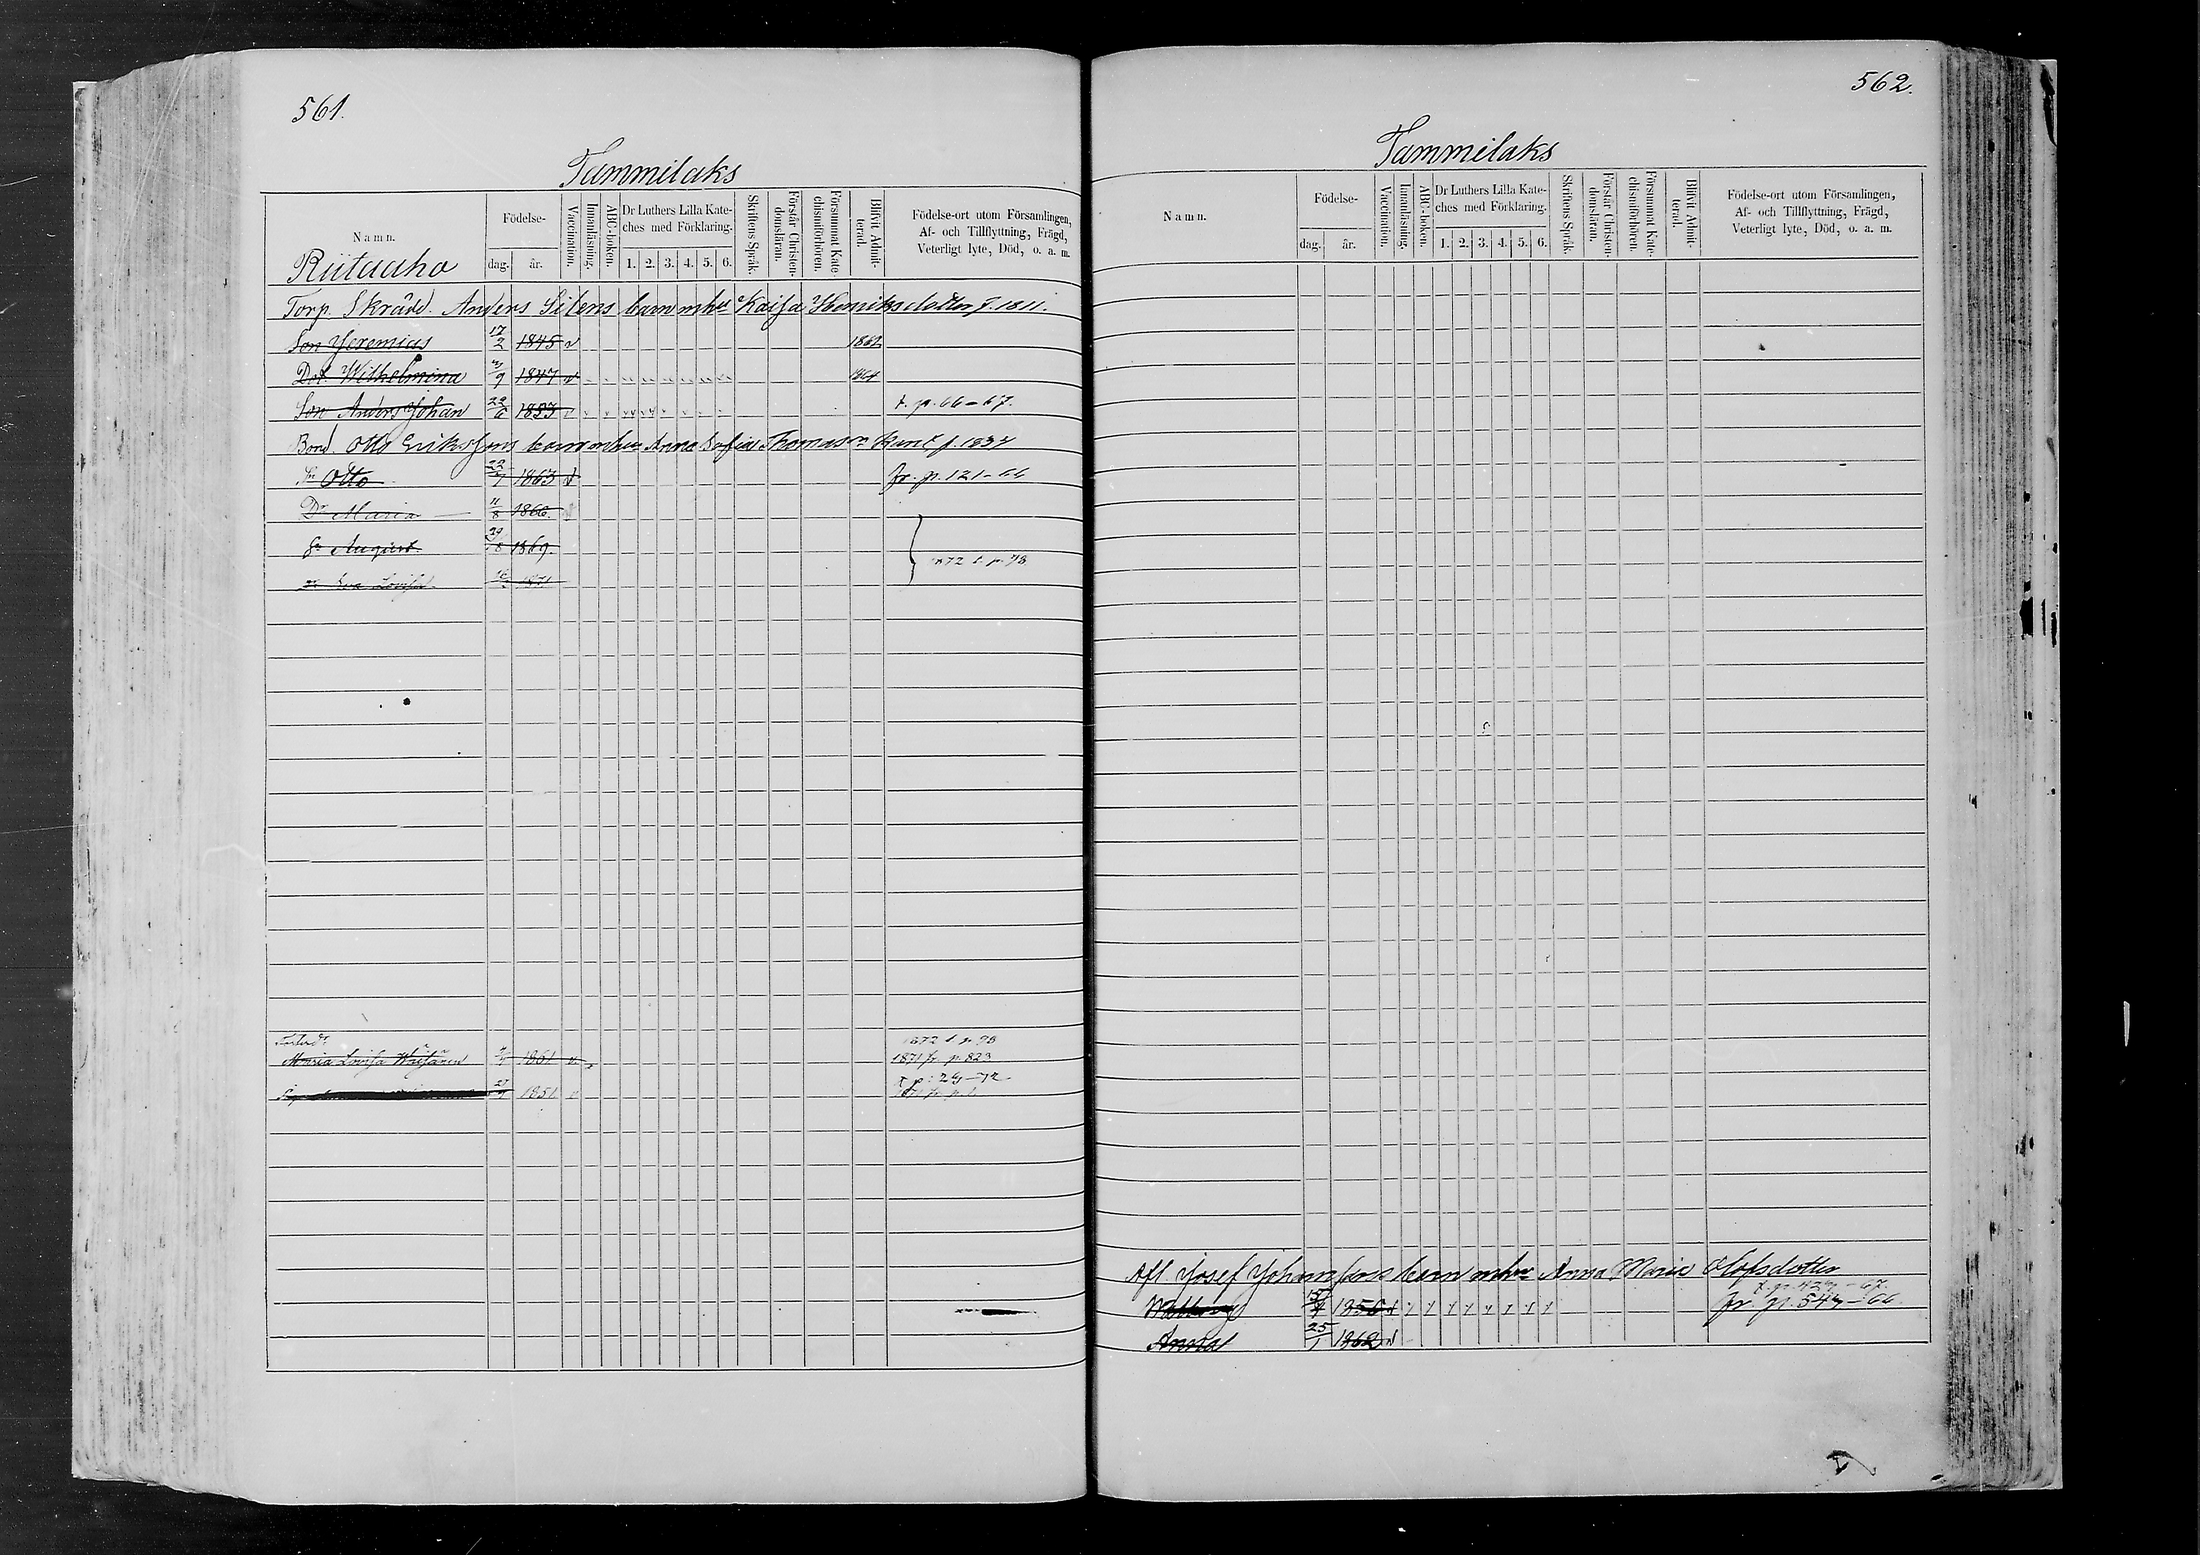 561.
Tammilaks
Namn.
Födelse-
dag.
år.
Vaccination.
Innanläsning.
ABC-boken.
Dr Luthers Lilla Kate-
ches med Förklaring.
1. 2. 3. 4. 5. 6.
Skriftens Språk.
Förstår Christen-
domsläran.
Försummat Kate-
chismiförhören.
Blifvit Admit-
terad.
Födelse-ort utom Församlingen,
Af- och Tillflyttning, Frägd,
Veterligt lyte, Död, o. a. m.
Riitaaho
Torp. Skrädd. Anders Silens barn mhu Kaisa Henriksdotter f. 1811.
Son Jeremias 17/2 1845 v 1862
Dot. Wilhelmina 9 1847 v 1864
Son Anders Johan 22/6 1853 v t. p. 66-67.
Bond. Otto Erikssons barn mhu Anna Sofia Thomasdr f. 1837
Sn Otto 22/7 1863 v fr. p. 121-66
Dr Maria 11/8 1866.
Sn August 29/8 1869.
1872 t. p. 98
Dr Eva Lovisa 1871
1872 t. p. 98
Maria Lovisa 1861 v 1871 fr. p. 823
t p. 1851 v
562.
Tammilaks
Namn.
Födelse-
dag.
år.
Vaccination.
Innanläsning.
ABC-boken.
Dr Luthers Lilla Kate-
ches med Förklaring.
1. 2. 3. 4. 5. 6.
Skriftens Språk.
Förstår Christen-
domsläran.
Försummat Kate-
chismiförhören.
Blifvit Admit-
terad.
Födelse-ort utom Församlingen,
Af- och Tillflyttning, Frägd,
Veterligt lyte, Död, o. a. m.
Afl. Josef Johanssons barn mhu Anna Maria Olofsdotter
15/4 1856 v fr. p. -66.
Anna 25/1 1862 v